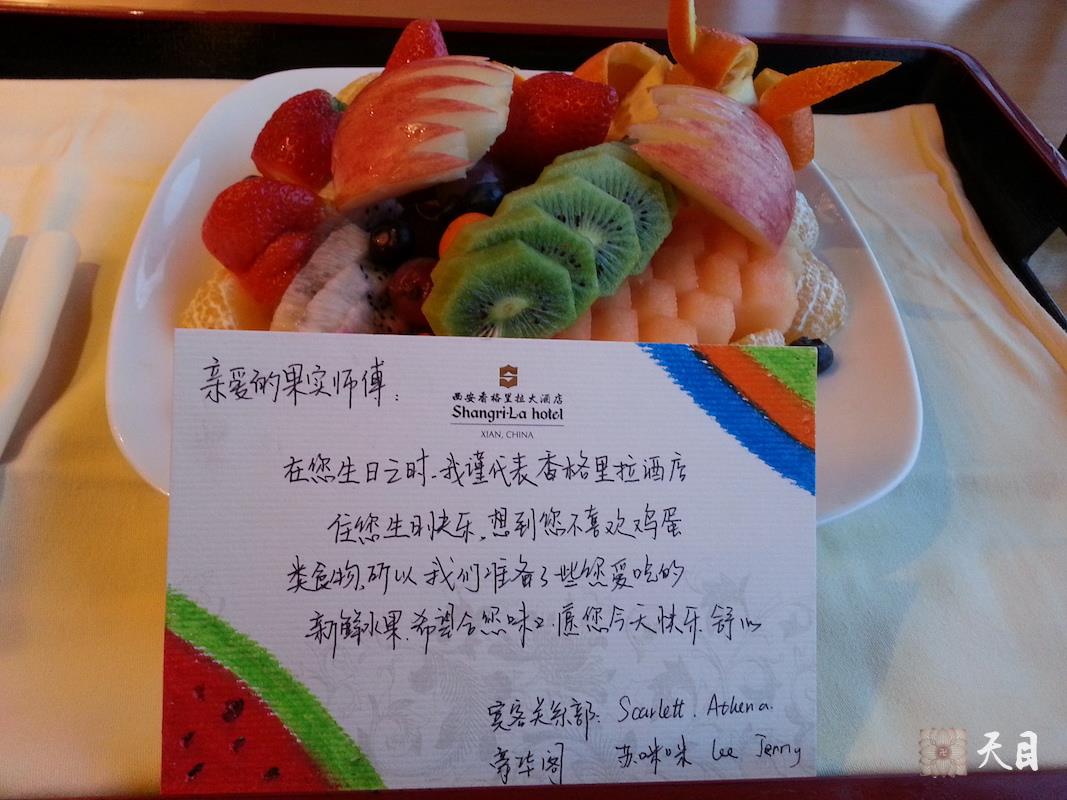 亲爱的果实师傅：
西安香格里拉大酒店
Shangri-La hotel
XIAN, CHINA
在您生日之时，我谨代表香格里拉酒店
住您生日快乐，想到您不喜欢鸡蛋
类食物，所以我们准备了些您爱吃的
新鲜水果，希望合您味口，愿您今天快乐、舒心
宾客关系部：Scarlett. Athena.
豪华阁 苏咪咪 Lee Jenny
天目